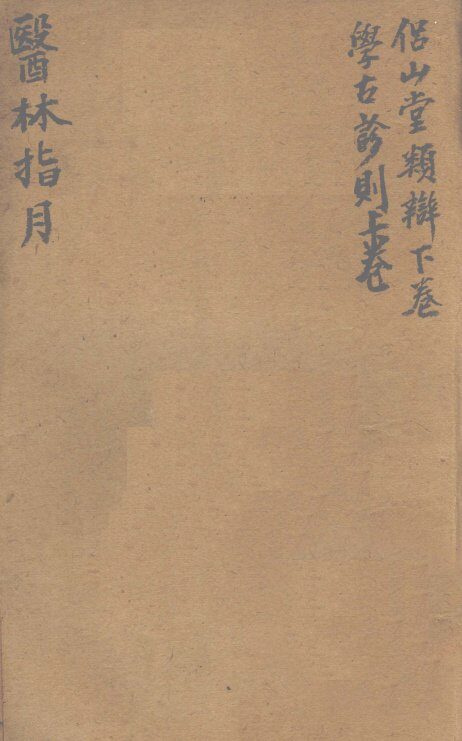 侣山堂類辯下卷
學古診則上卷
醫林指月